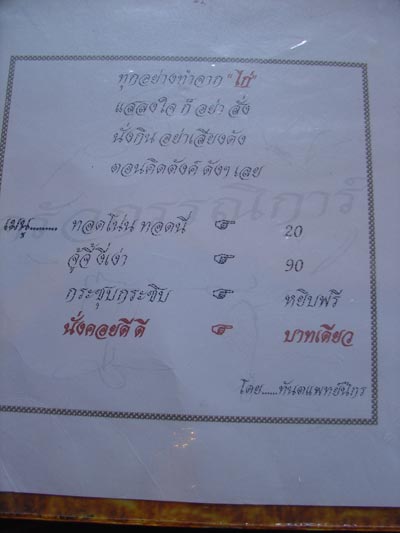 ทุกอย่างทำจาก "ไก่"
แสลงใจ ก็ อย่า สั่ง
นั่งกิน อย่าเสียงดัง
ตอนคิดตังค์ ดังๆ เลย
เมนู......... ทอดโน่น ทอดนี่ ☞ 20
จู้จี้ งี่เง่า ☞ 90
กระซุบกระซิบ ☞ หยิบฟรี
นั่งคอยดี ดี ☞ บาทเดียว
โดย......ทันตแพทย์นิกร